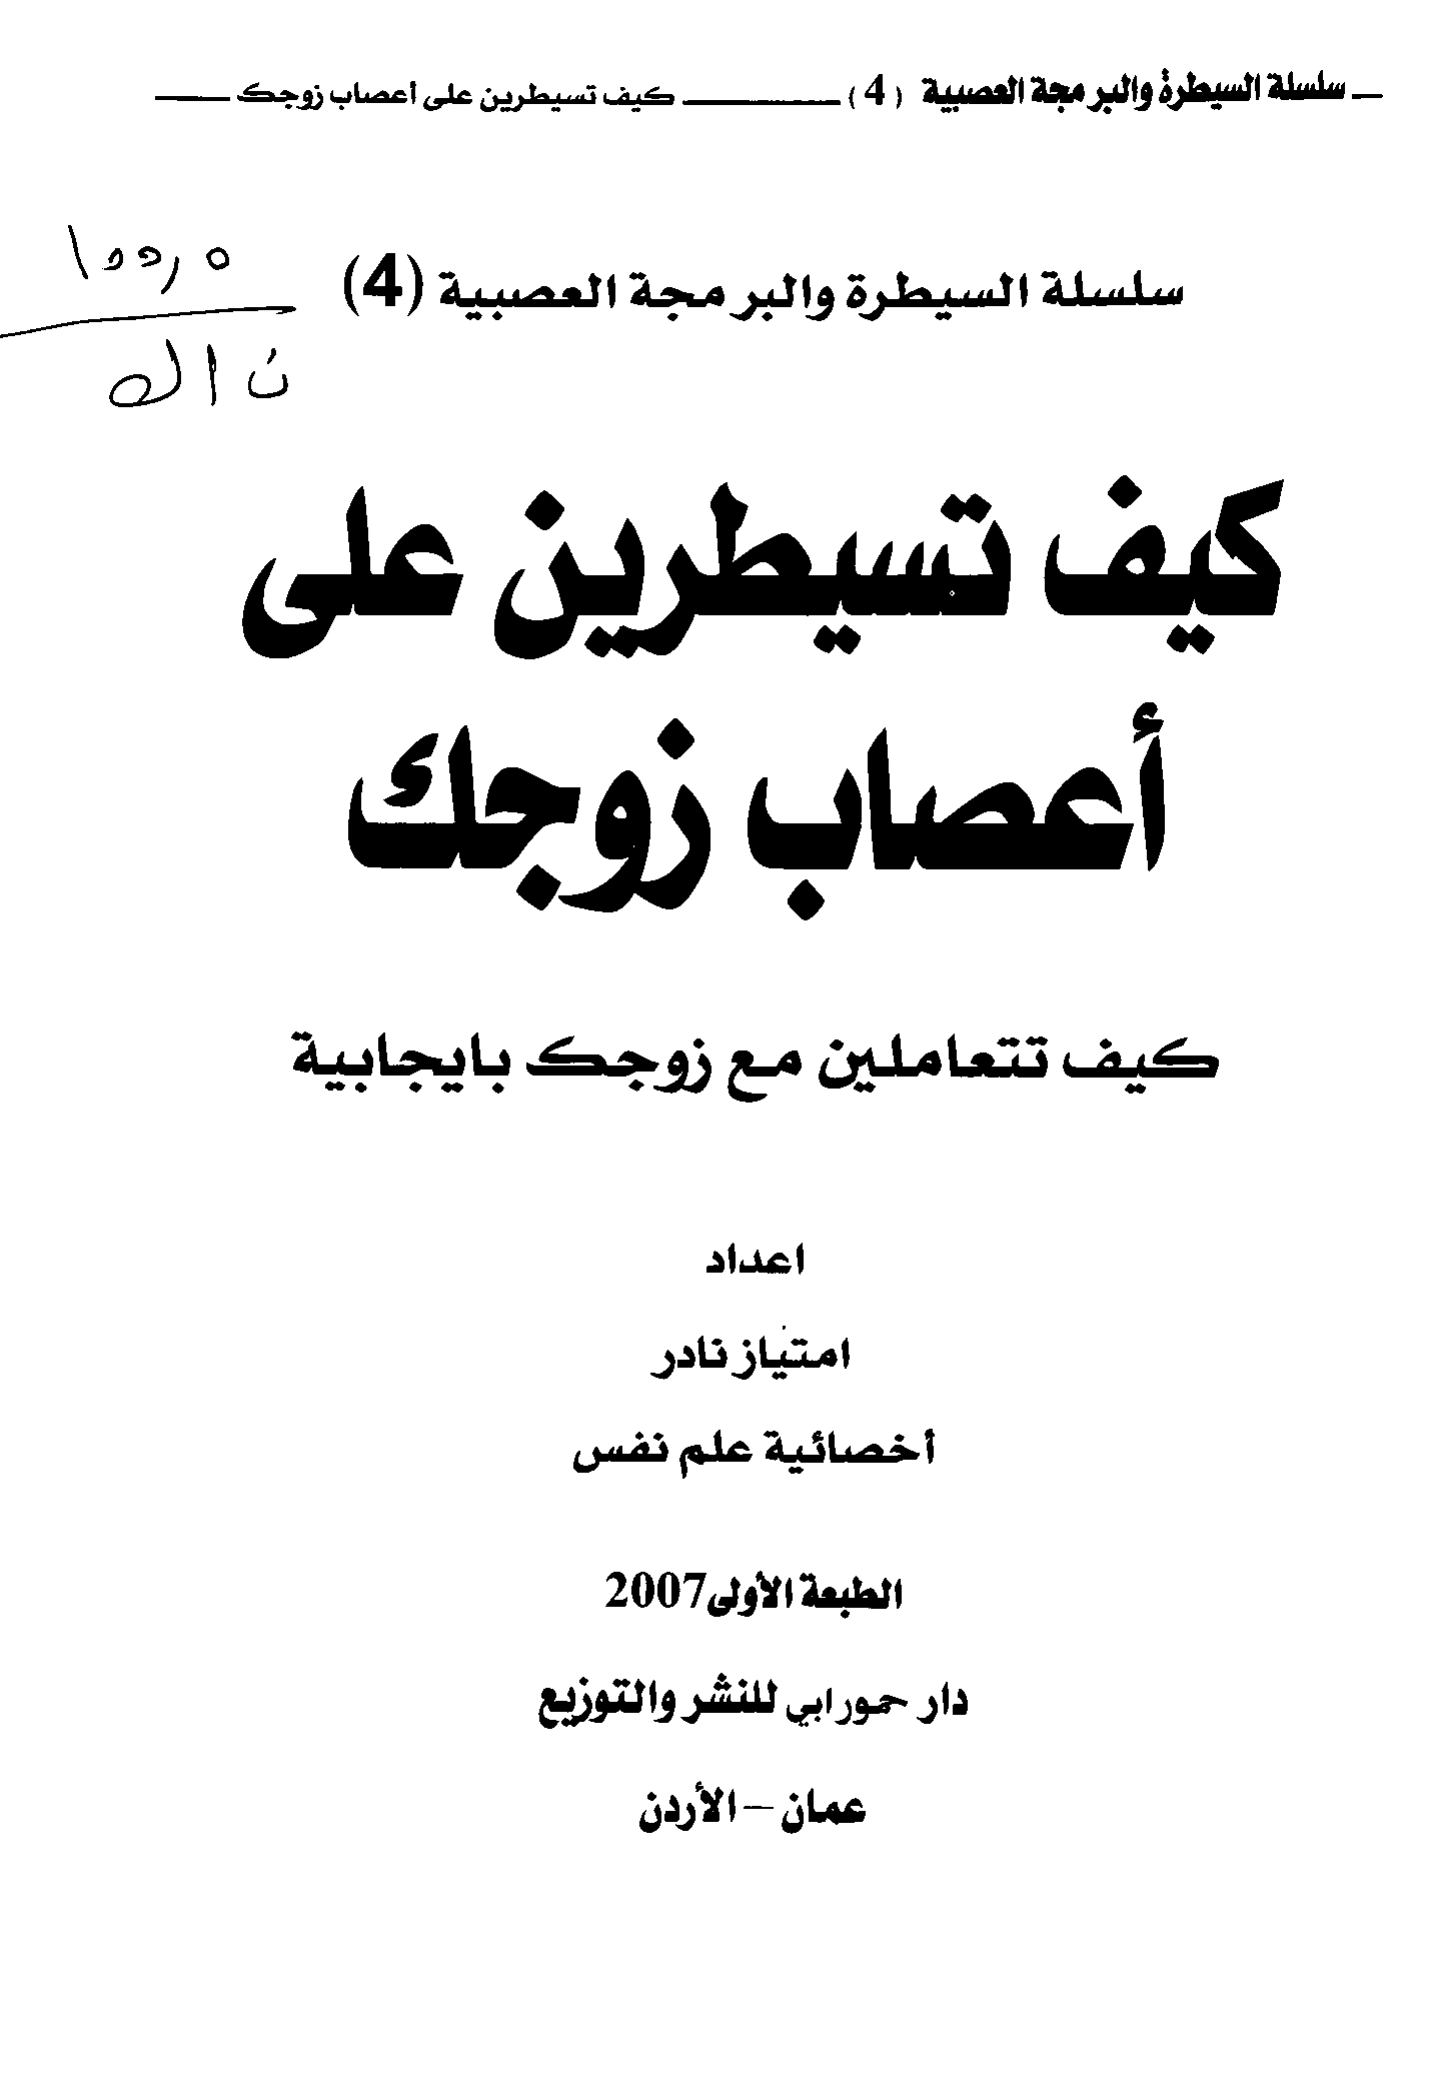 سلسلة السيطرة والبرمجة العصبية (4) كيف تسيطرين على أعصاب زوجك
سلسلة السيطرة والبرمجة العصبية (4)
كيف تسيطرين على
أعصاب زوجك
كيف تتعاملين مع زوجك بايجابية
اعداد
امتياز نادر
أخصائية علم نفس
الطبعة الأولى2007
دار حمورابي للنشر والتوزيع
عمان – الأردن